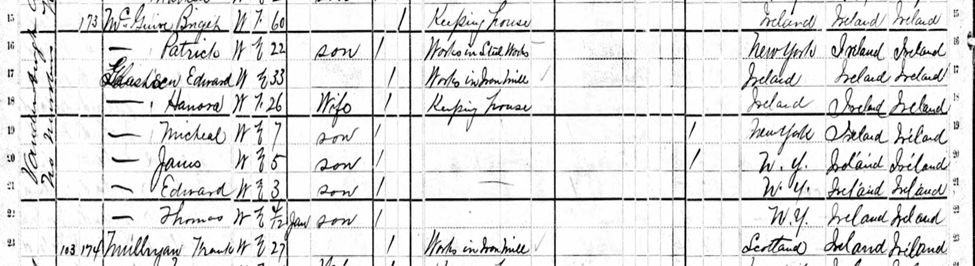 15 173 McGuire Briget W F 60 / Keeping house Ireland Ireland Ireland 15
16 — Patrick W M 22 son / Works in Steel Works New York Ireland Ireland 16
17 Edward W M 33 / Works in Iron Mill Ireland Ireland Ireland 17
18 — Hanora W F 26 Wife / Keeping house Ireland Ireland Ireland 18
19 — Micheal W M 7 son / / New York Ireland Ireland 19
20 — James W M 5 son / / N. Y. Ireland Ireland 20
21 — Edward W M 3 son / — N. Y. Ireland Ireland 21
22 — Thomas W M 4/12 Jan son / N Y. Ireland Ireland 22
23 103 174 Frank W M 27 / Works in Iron Mill Scotland Ireland Ireland 23